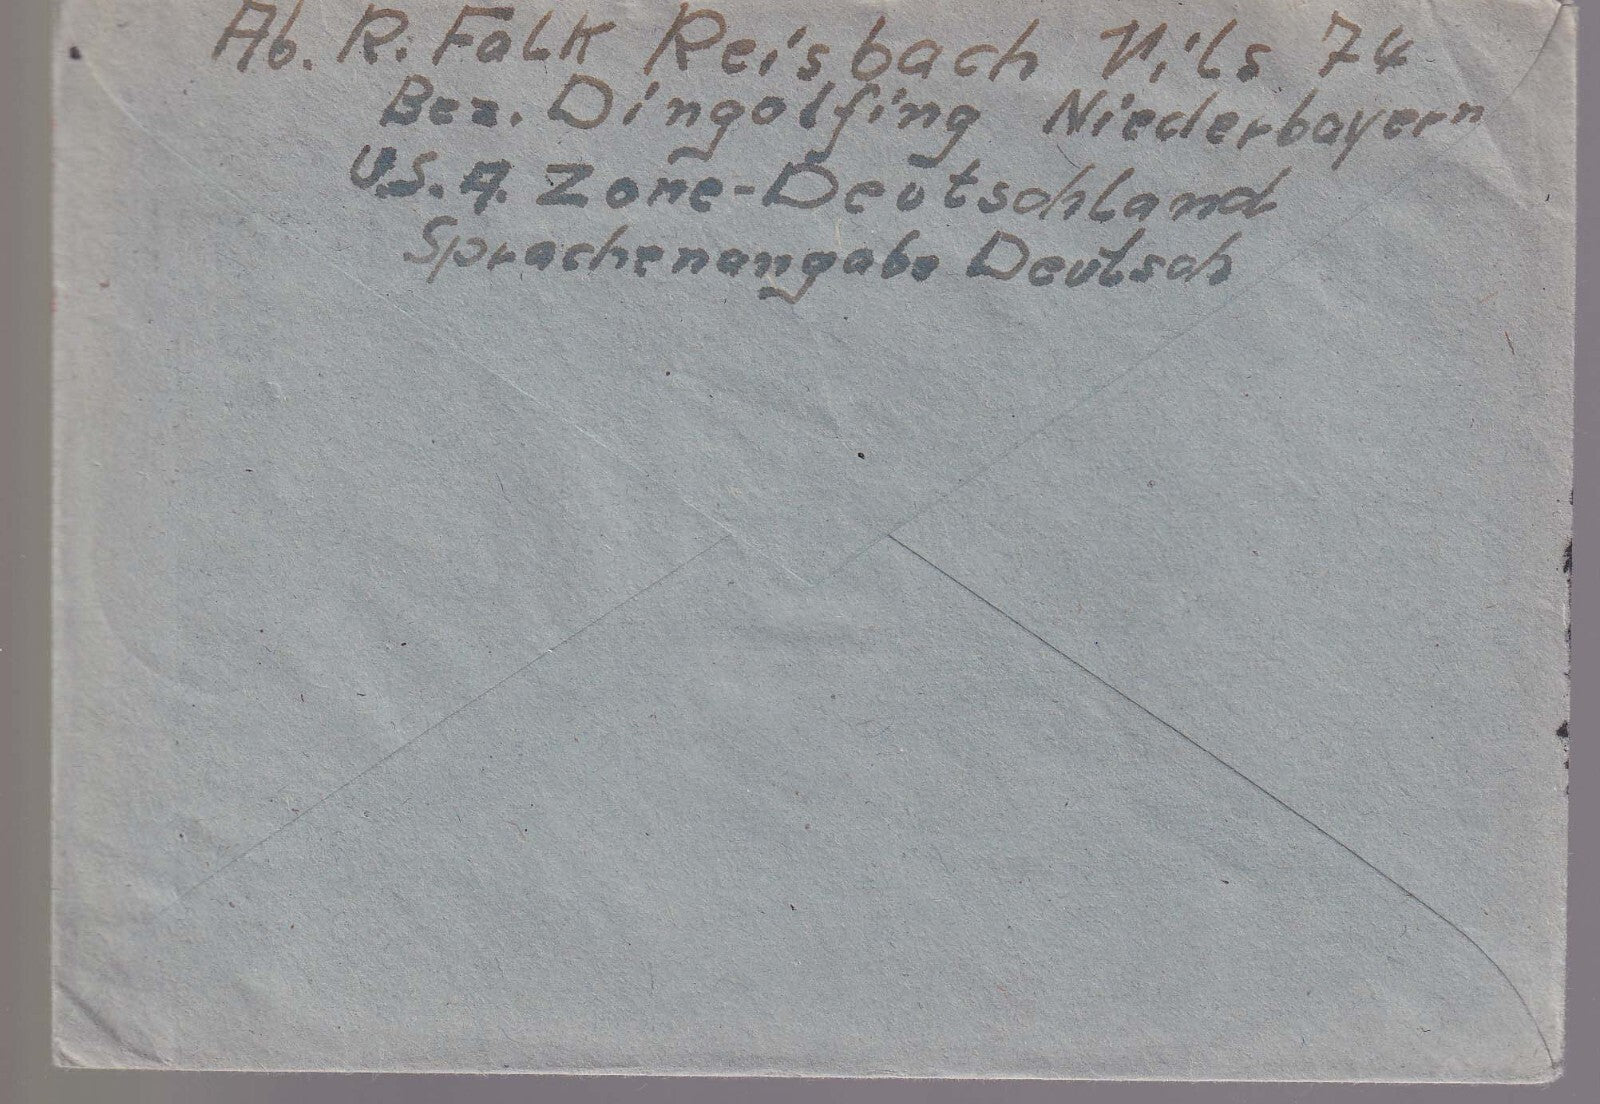 Ab. R. Falk Reisbach Vils 74
Bez. Dingolfing Niederbayern
U.S.A. Zone-Deutschland
Sprachenangabe Deutsch